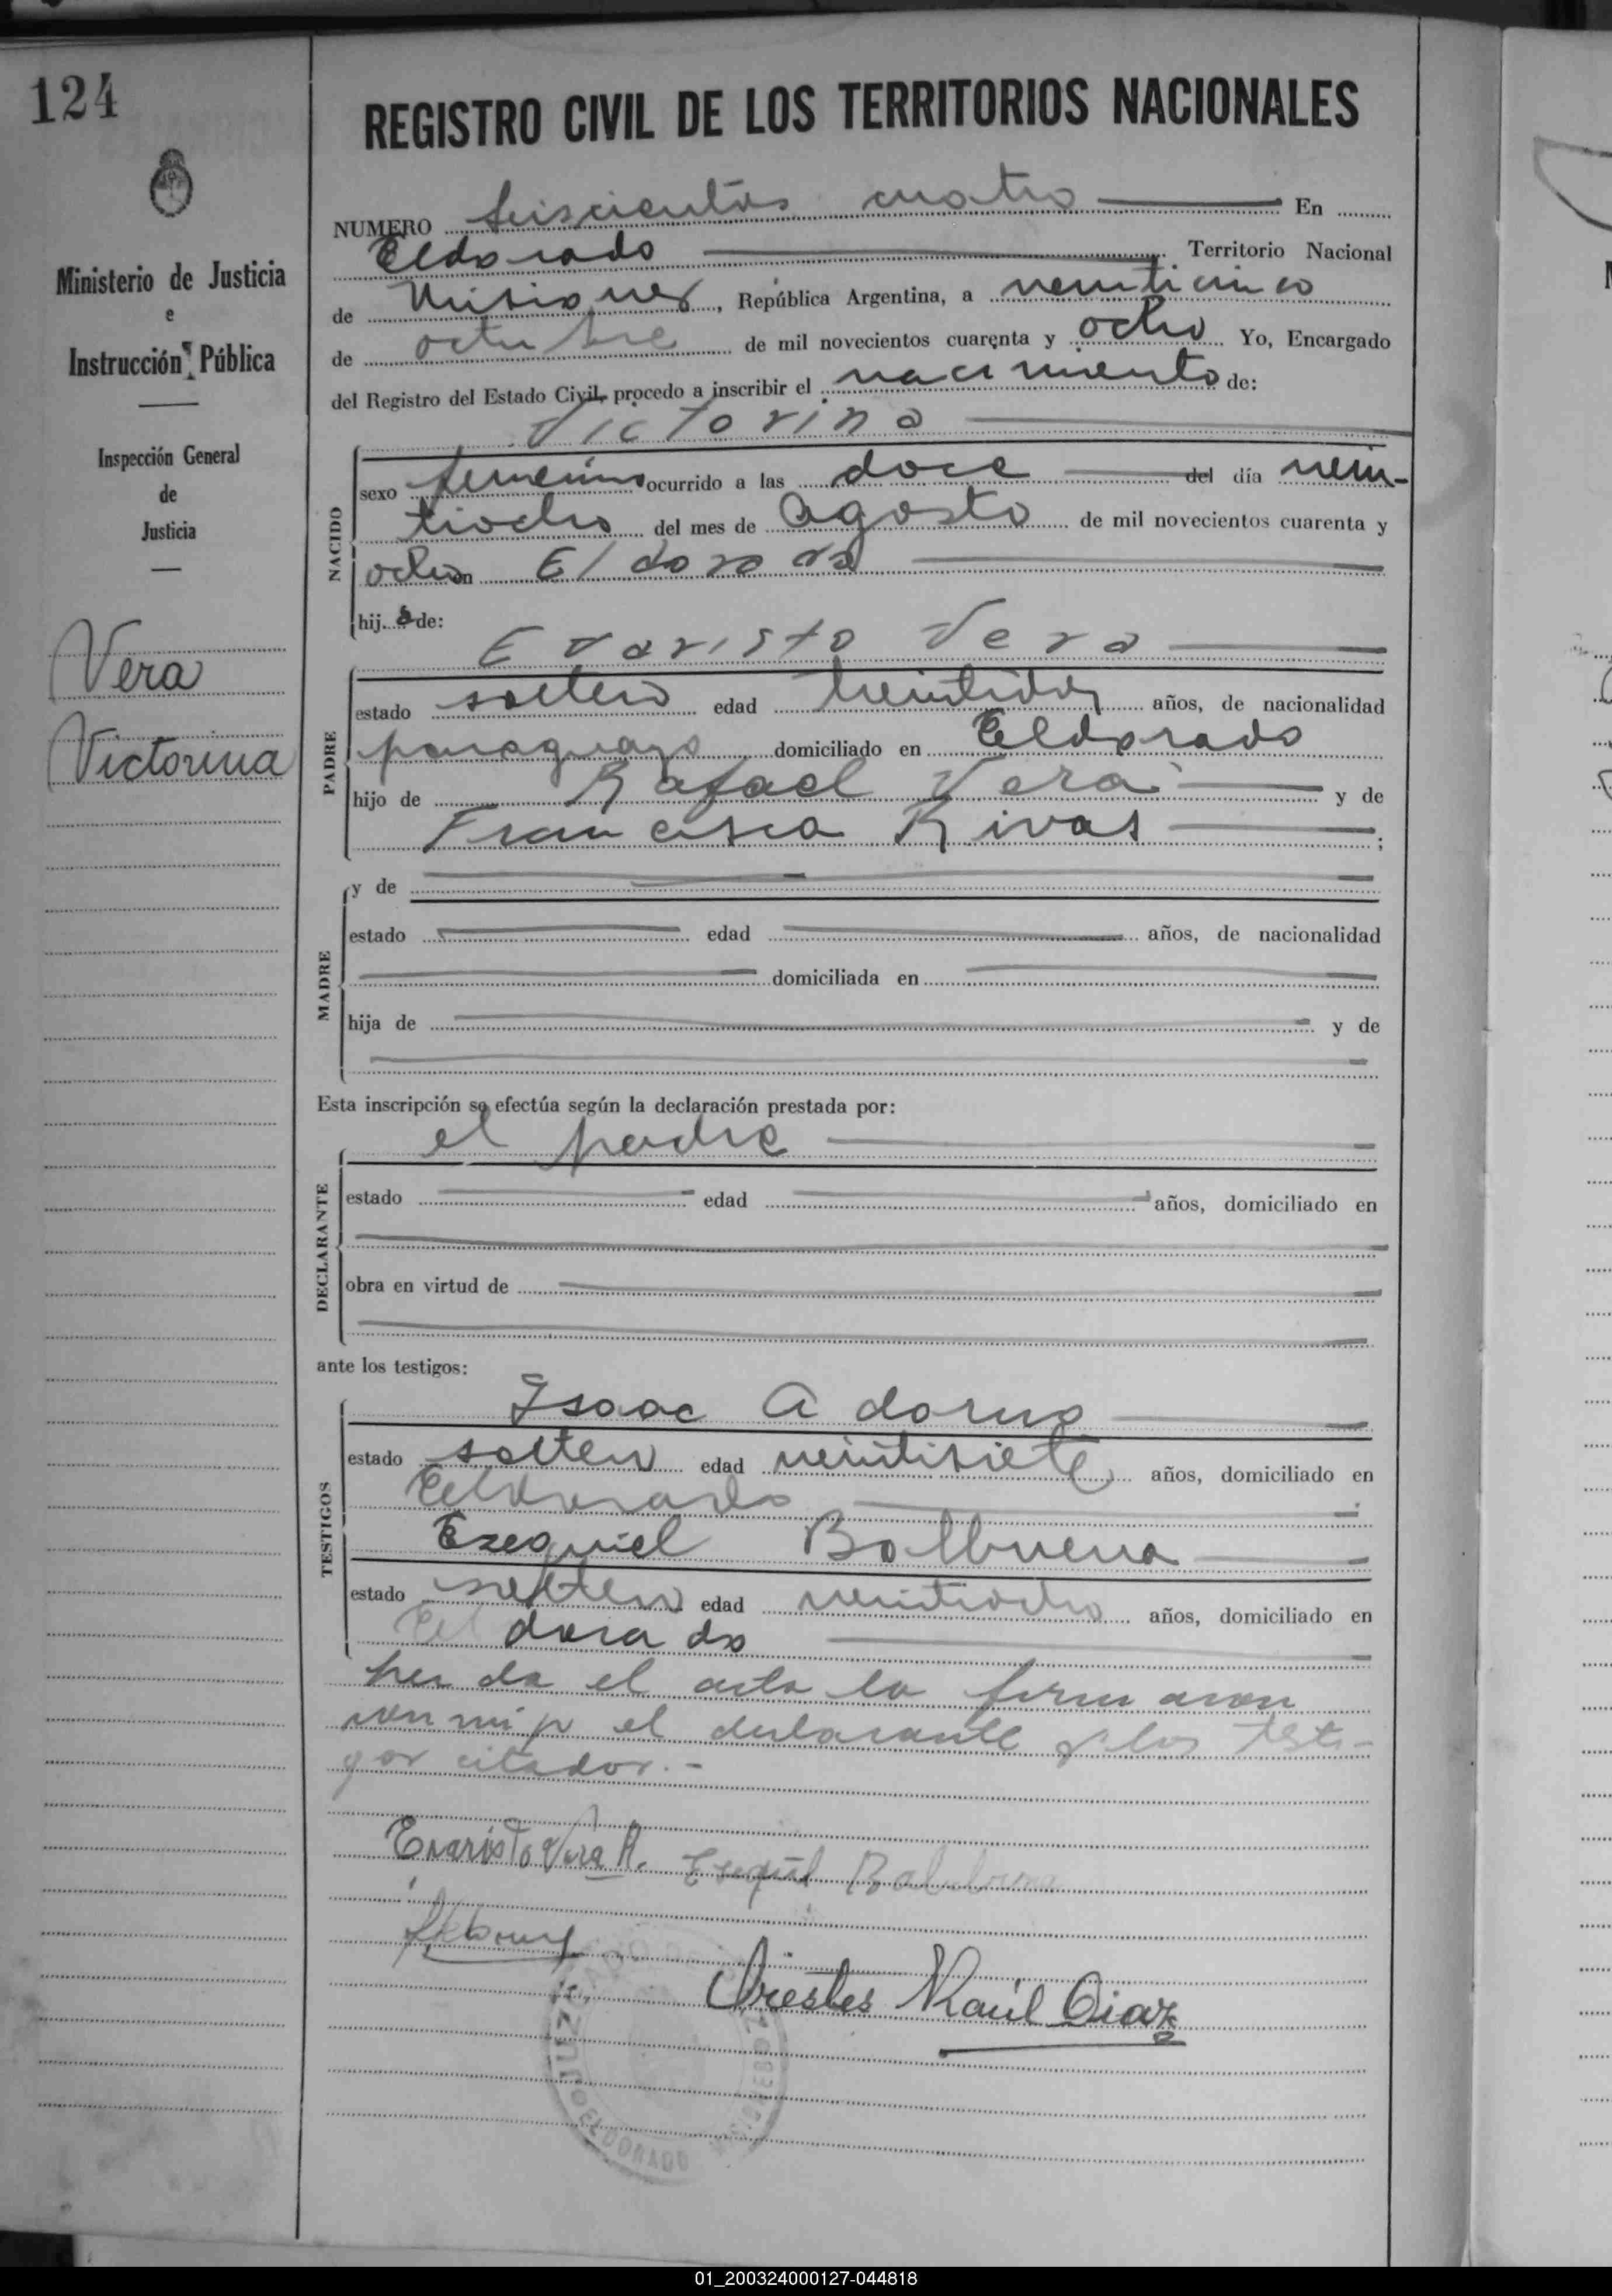 124
REGISTRO CIVIL DE LOS TERRITORIOS NACIONALES
NUMERO seiscientos cuatro En
Eldorado Territorio Nacional
de Misiones, República Argentina, a veinticinco
de octubre de mil novecientos cuarenta y ocho Yo, Encargado
del Registro del Estado Civil, procedo a inscribir el nacimiento de:
Victorina
Ministerio de Justicia
e
Instrucción Pública
Inspección General
de
Justicia
Vera
Victorina
NACIDO
sexo femenino ocurrido a las doce del día vein-
tiocho del mes de Agosto de mil novecientos cuarenta y
ocho en Eldorado
hij a de:
Evaristo Vera
PADRE
estado soltero edad treintidos años, de nacionalidad
paraguayo domiciliado en Eldorado
hijo de Rafael Vera y de
Francisca Rivas ;
MADRE
y de
estado edad años, de nacionalidad
domiciliada en
hija de y de
Esta inscripción se efectúa según la declaración prestada por:
el padre
DECLARANTE
estado edad años, domiciliado en
obra en virtud de
ante los testigos:
TESTIGOS
Isaac Adorno
estado soltero edad veintisiete años, domiciliado en
Eldorado
Ezequiel Balbuena
estado soltero edad veintiocho años, domiciliado en
Eldorado
leida el acta la firmaron
conmigo el declarante y los testi-
gos citados.-
Evaristo Vera R. Ezequiel Balbuena
Orestes Raúl Diaz
JUZ
ELDORADO
01_200324000127-044818